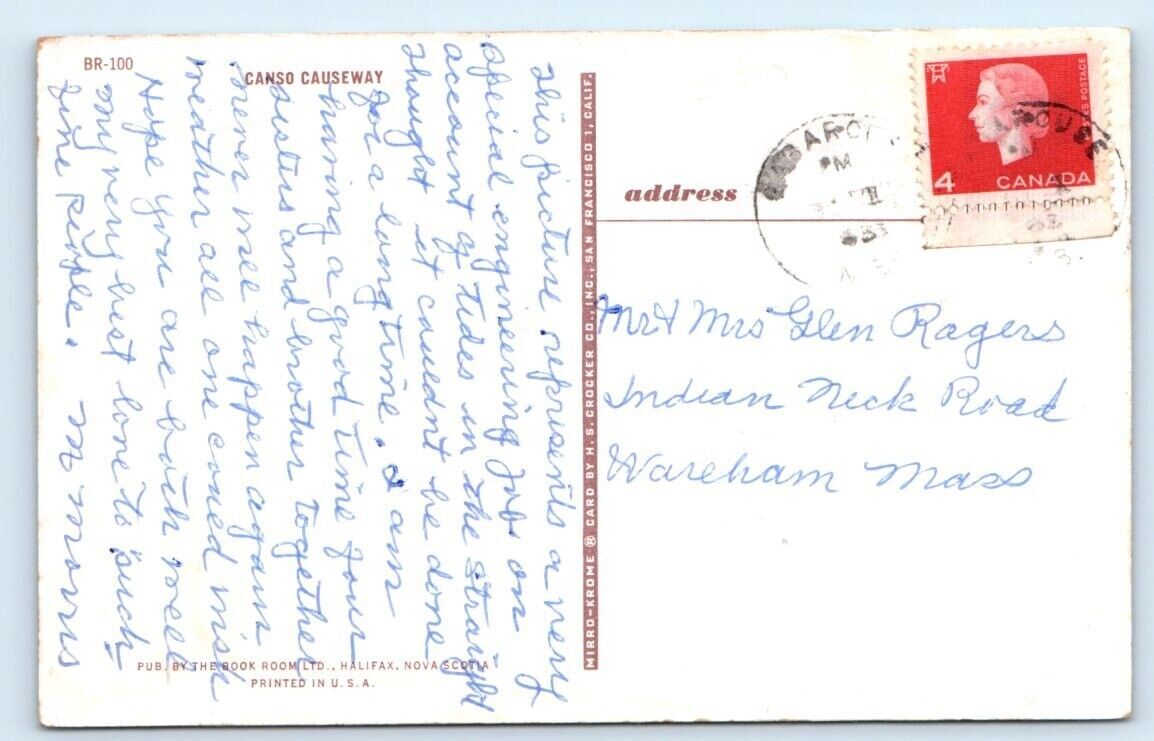 BR-100
CANSO CAUSEWAY
This picture represents a very
special engineering job on
account of tides in the straight
thought it couldnt be done
for a long time. I am
having a good time four
sisters and brother together
never will happen again
weather all one coued wish
Hope you are both well
my very best love to such
fine people. M Morris
PUB. BY THE BOOK ROOM LTD., HALIFAX, NOVA SCOTIA
PRINTED IN U.S.A.
MIRRO-KROME ® CARD BY H. S. CROCKER CO., INC., SAN FRANCISCO 1, CALIF.
address
POSTES POSTAGE
4 CANADA
PM
Mr & Mrs Glen Ragers
Indian Neck Road
Wareham Mass